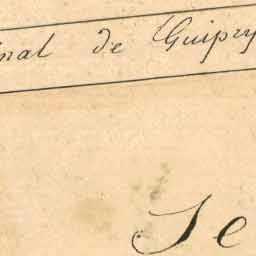 nal de Guipry
Se